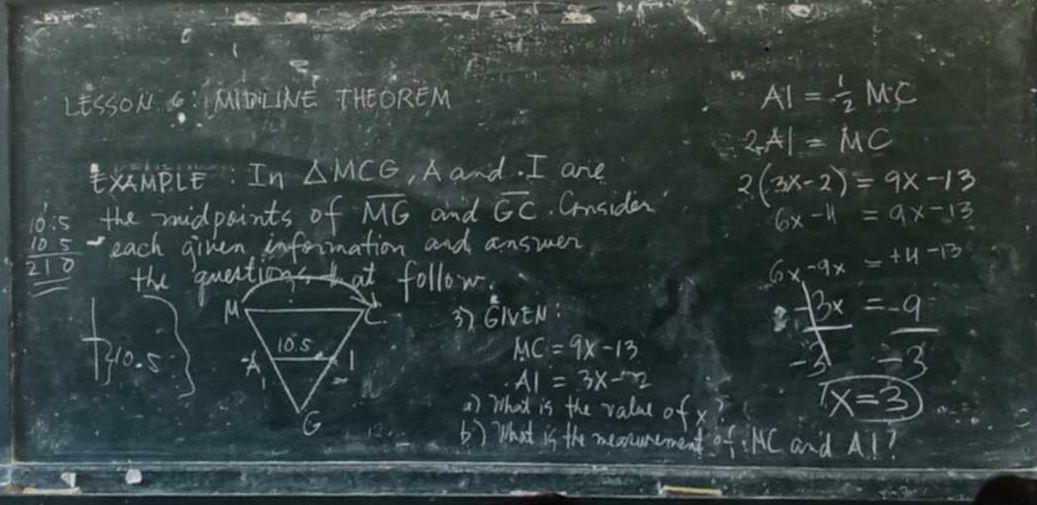 LESSON 6: MIDLINE THEOREM
EXAMPLE: In △MCG, A and I are
the midpoints of M̅G̅ and G̅C̅. Consider
each given information and answer
the questions that follow.
10.5
10 5
21 0
10.5
M C
10.5
A I
G
3) GIVEN:
MC = 9x-13
AI = 3x-2
a) What is the value of x?
b) What is the measurement of MC and AI?
AI = ½ MC
2AI = MC
2(3x-2) = 9x-13
6x-4 = 9x-13
6x-9x = +4-13
-3x = -9
-3 -3
x=3